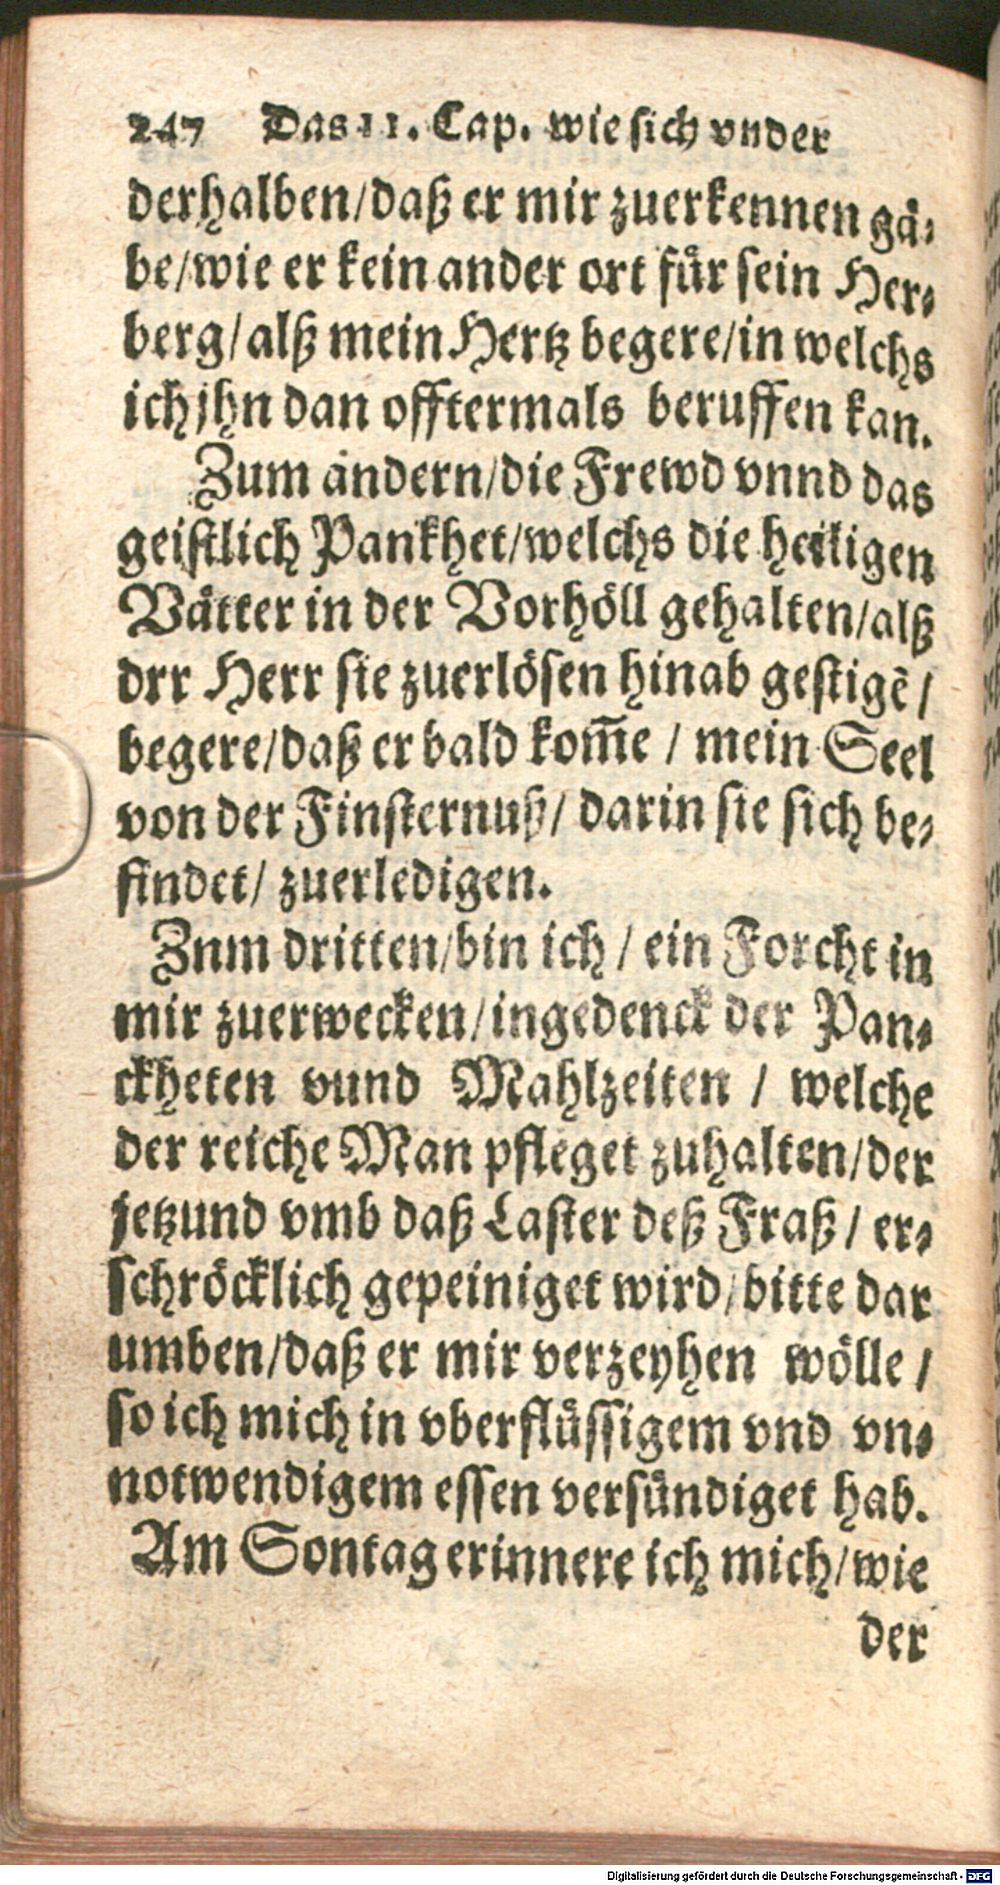 247 Das 11. Cap. wie sich vnder
derhalben/daß er mir zuerkennen gä⸗
be/wie er kein ander ort für sein Her⸗
berg/alß mein Hertz begere/in welchs
ich jhn dan offtermals beruffen kan.
Zum andern/die Frewd vnnd das
geistlich Pankhet/welchs die heiligen
Vätter in der Vorhöll gehalten/alß
drr Herr sie zuerlösen hinab gestigẽ/
begere/daß er bald kom̃e / mein Seel
von der Finsternuß/ darin sie sich be⸗
findet/ zuerledigen.
Znm dritten/bin ich / ein Forcht in
mir zuerwecken/ingedenck der Pan⸗
ckheten vund Mahlzeiten / welche
der reiche Man pfleget zuhalten/der
jetzund vmb daß Laster deß Fraß/ er⸗
schröcklich gepeiniget wird/bitte dar
umben/daß er mir verzeyhen wölle /
so ich mich in vberflüssigem vnd vn⸗
notwendigem essen versündiget hab.
Am Sontag erinnere ich mich/wie
der
Digitalisierung gefördert durch die Deutsche Forschungsgemeinschaft - DFG